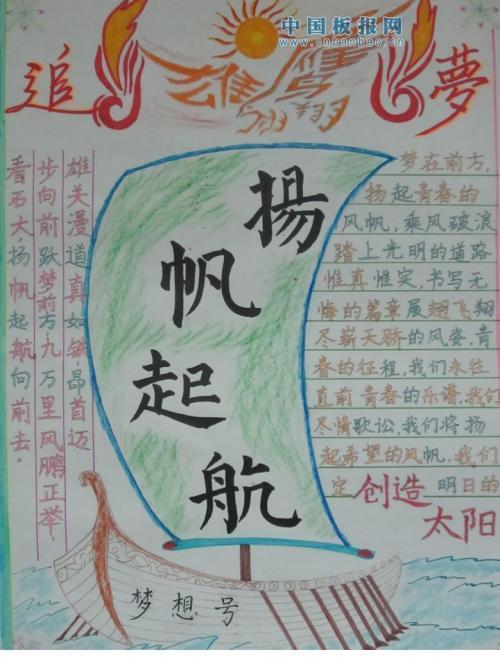 中国板报网
www.cnbanbao.cn
追
夢
揚
帆
起
航
雄关漫道真如铁·昂首迈
步向前跃梦前方九万里风鹏正举!
看石大,扬帆起航向前去.
梦在前方,
扬起青春的
风帆,乘风破浪
踏上光明的道路
惟真惟实,书写无
悔的篇章展翅飞翔
尽崭天骄的风姿,青
春的征程,我们永往
直前 青春的乐谱,我们
尽情歌讼,我们将扬
起希望的风帆,我们
定 创造 明日的
太阳
梦想号